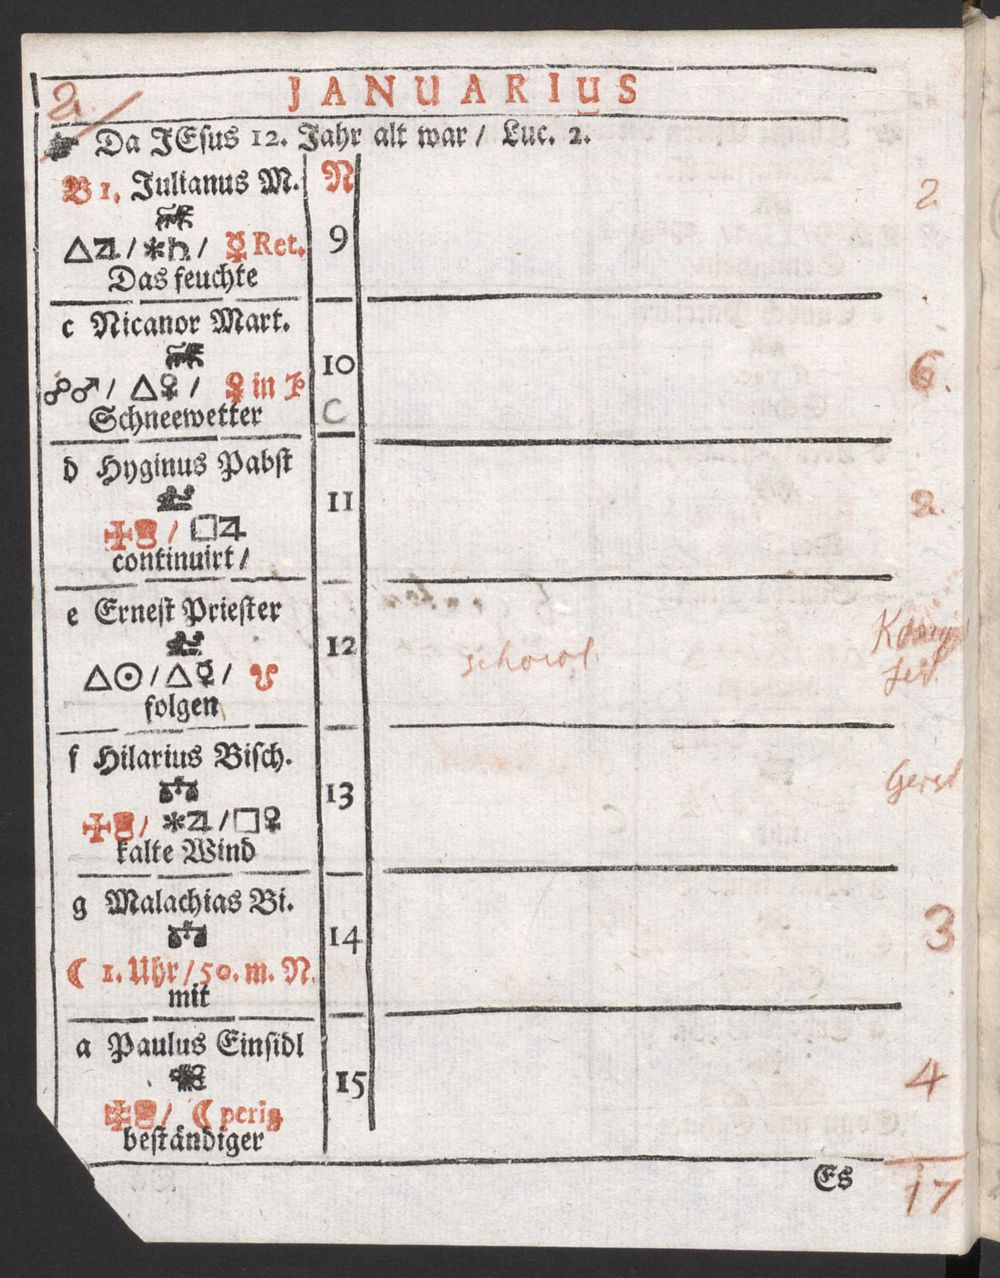 JANUARIUS
2.
Da JEsus 12. Jahr alt war / Luc. 2.
B 1. Julianus M. N
2
△♃ / ✶♄ / ☿ Ret. 9
Das feuchte
c Nicanor Mart.
10
☍♂ / △♀ / ♀ in ♑ 6.
Schneewetter C
d Hyginus Pabst
11
2.
/ □♃
continuirt /
e Ernest Priester
12
△☉ / △☿ /
folgen
f Hilarius Bisch.
Gerst
13
/ ✶♃ / □♀
kalte Wind
g Malachias Bi.
14 3
☾ 1. Uhr / 50. m. N.
mit
a Paulus Einsidl
15 4
/ ☾ perig
beständiger
Es
17